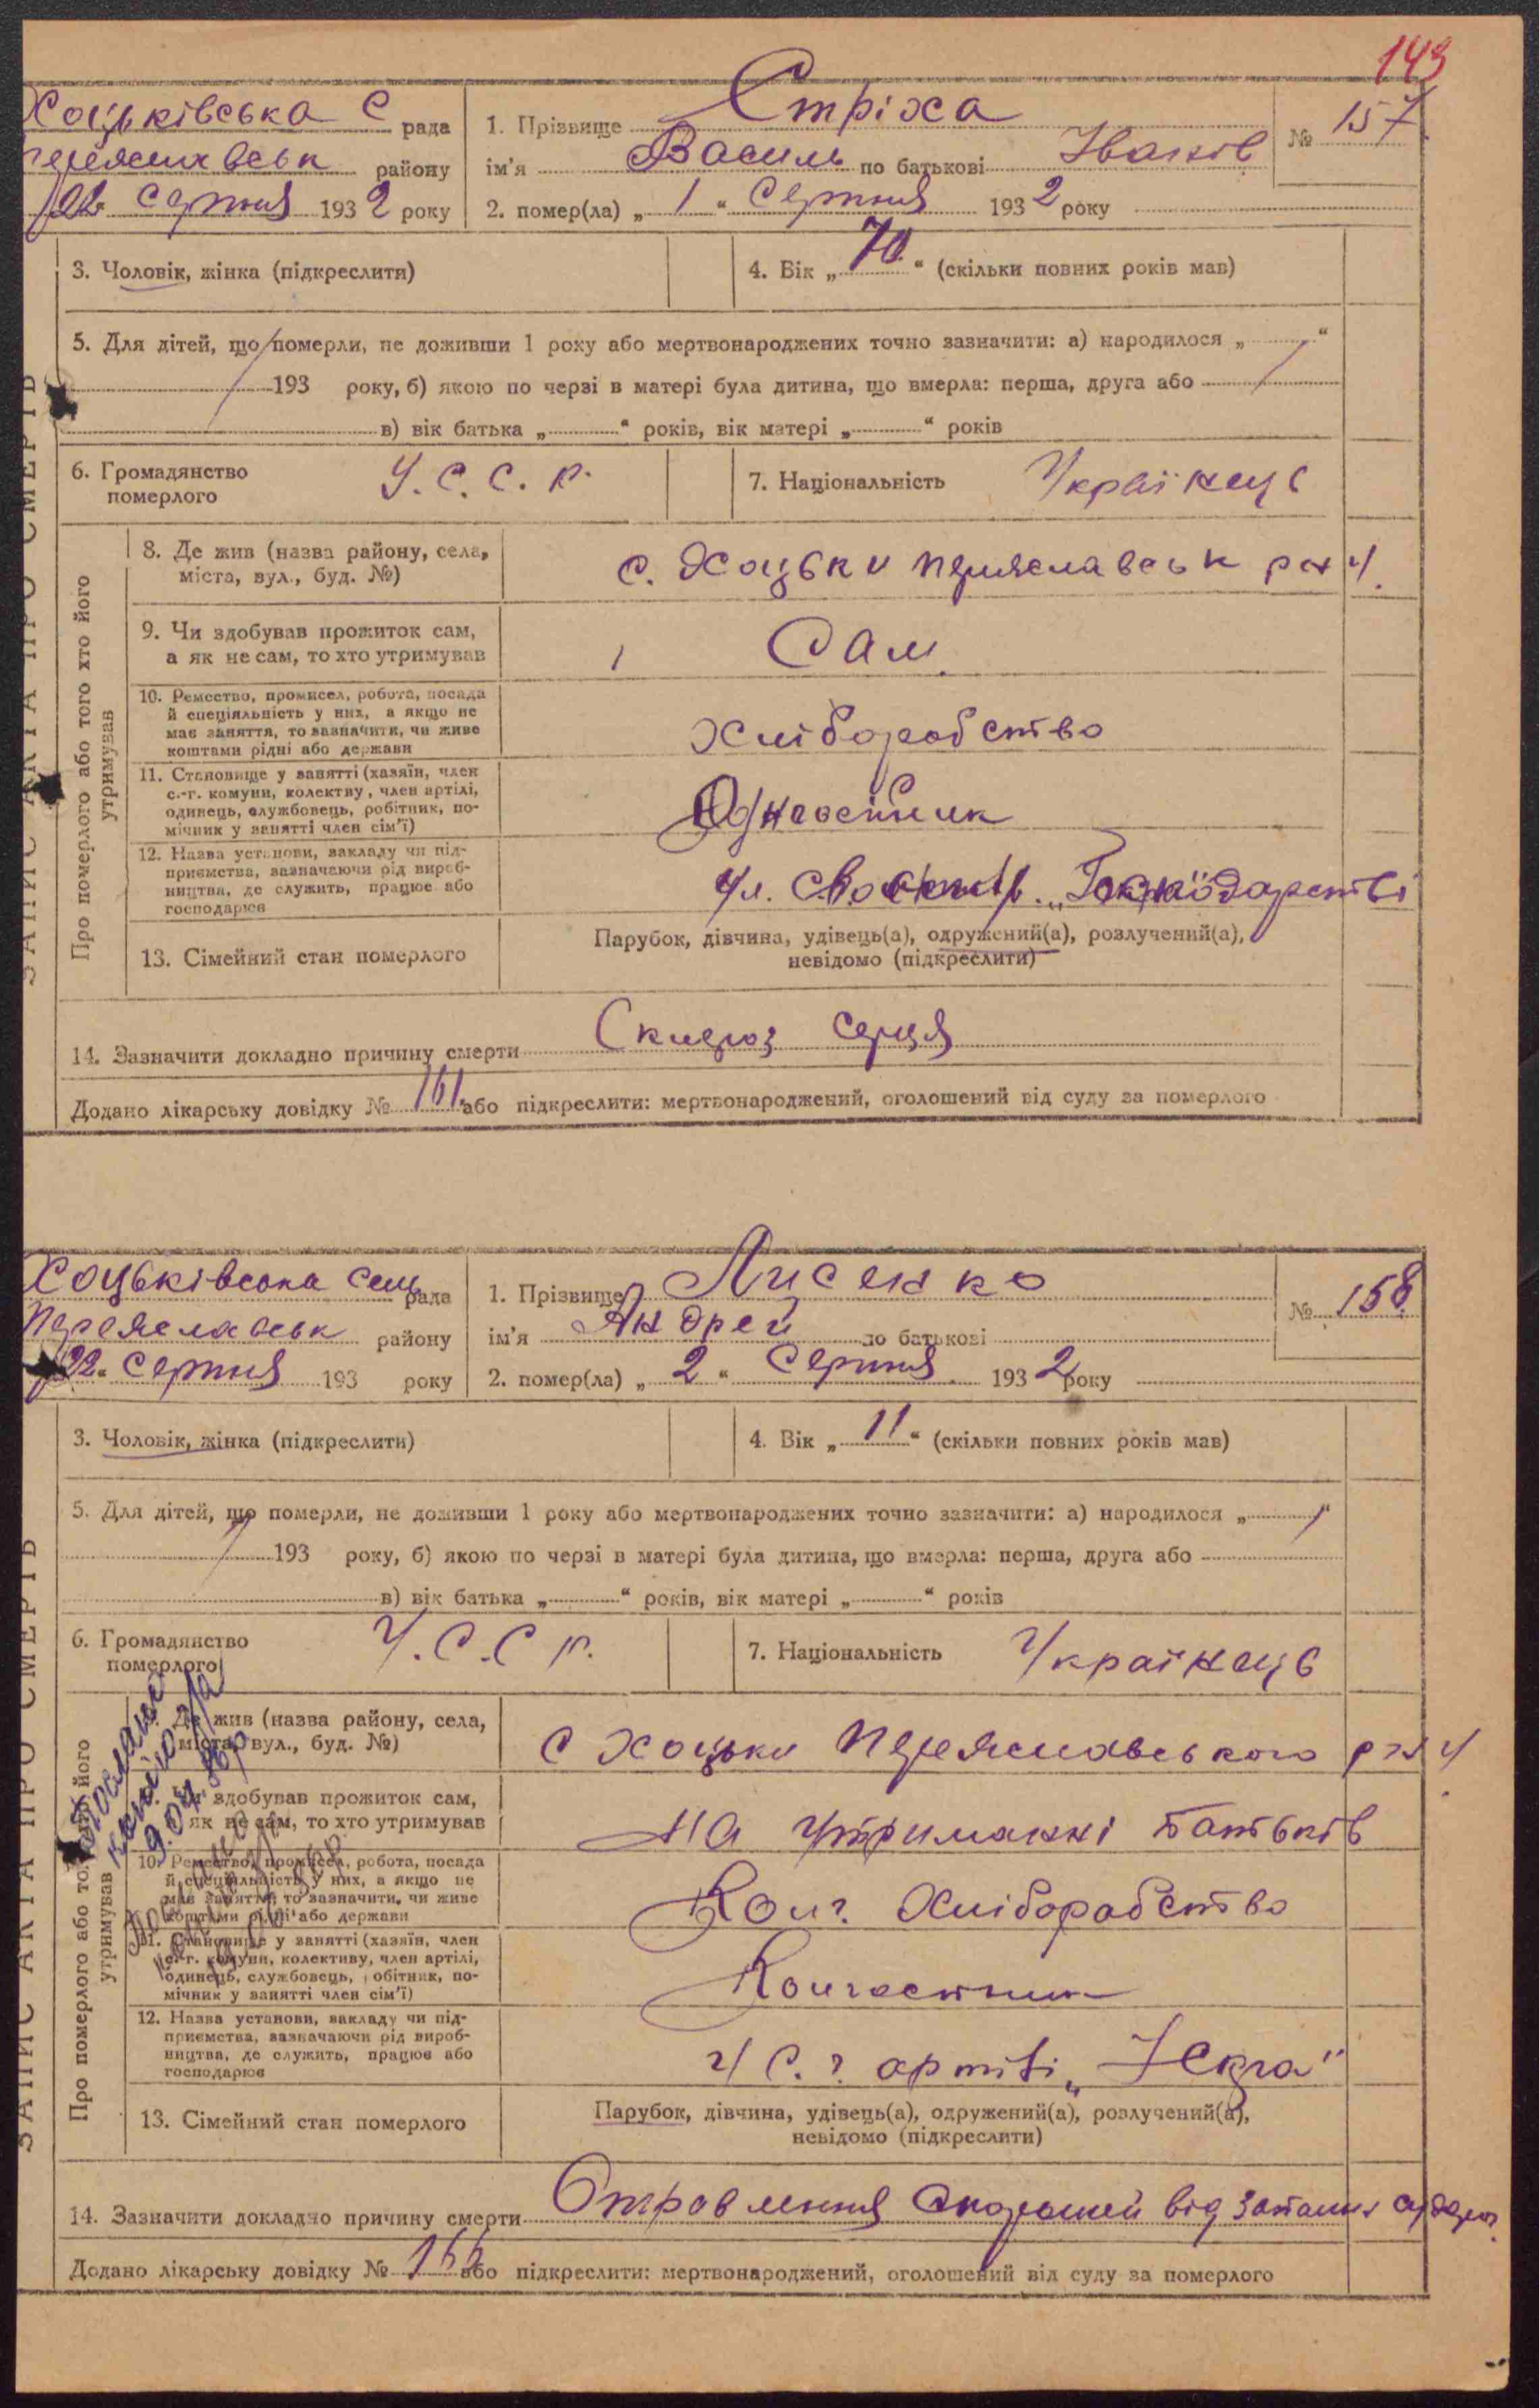 143
Хоцьківська С рада
Переяславськ району
22 Серпня 1932 року
1. Прізвище Стріха
ім'я Василь по батькові Іванов
№ 157
2. помер(ла) „ 1 " Серпня 1932 року
3. Чоловік, жінка (підкреслити)
4. Вік „ 70 " (скільки повних років мав)
5. Для дітей, що померли, не доживши 1 року або мертвонароджених точно зазначити: а) народилося „ "
193 року, б) якою по черзі в матері була дитина, що вмерла: перша, друга або
в) вік батька „ " років, вік матері „ " років
6. Громадянство
померлого
У.С.С.Р.
7. Національність Українець
ЗАПИС АКТА ПРО СМЕРТЬ
Про померлого або того хто його
утримував
8. Де жив (назва району, села,
міста, вул., буд. №)
с. Хоцьки Переяславськ р-н У.
9. Чи здобував прожиток сам,
а як не сам, то хто утримував
Сам
10. Ремество, промисел, робота, посада
й спеціяльність у них, а якщо не
має заняття, то зазначити, чи живе
коштами рідні або держави
Хліборобство
11. Становище у занятті (хазяїн, член
с.-г. комуни, колективу, член артілі,
одинець, службовець, робітник, по-
мічник у занятті член сім'ї)
Одноосібник
12. Назва установи, закладу чи під-
приємства, зазначаючи рід вироб-
ництва, де служить, працює або
господарює
Господарстві
13. Сімейний стан померлого
Парубок, дівчина, удівець(а), одружений(а), розлучений(а),
невідомо (підкреслити)
14. Зазначити докладно причину смерти Склероз серця
Додано лікарську довідку № 161 або підкреслити: мертвонароджений, оголошений від суду за померлого
Хоцьківська Сель рада
Переяславськ району
22. Серпня 193 року
1. Прізвище Лисенко
ім'я Андрей по батькові
№ 158
2. помер(ла) „ 2 " Серпня 1932 року
3. Чоловік, жінка (підкреслити)
4. Вік „ 11 " (скільки повних років мав)
5. Для дітей, що померли, не доживши 1 року або мертвонароджених точно зазначити: а) народилося „ "
193 року, б) якою по черзі в матері була дитина, що вмерла: перша, друга або
в) вік батька „ " років, вік матері „ " років
6. Громадянство
померлого
У.С.С.Р.
7. Національність Українець
ЗАПИС АКТА ПРО СМЕРТЬ
Про померлого або того хто його
утримував
Де жив (назва району, села,
міста, вул., буд. №)
с Хоцьки Переяславського р-н У
Чи здобував прожиток сам,
як не сам, то хто утримував
На утриманні батьків
10. Ремество, промисел, робота, посада
й спеціяльність у них, а якщо не
має заняття, то зазначити, чи живе
коштами рідні або держави
Колг. Хліборобство
11. Становище у занятті (хазяїн, член
с.-г. комуни, колективу, член артілі,
одинець, службовець, робітник, по-
мічник у занятті член сім'ї)
Колгоспник
12. Назва установи, закладу чи під-
приємства, зазначаючи рід вироб-
ництва, де служить, працює або
господарює
У С.г. артілі „Іскра"
13. Сімейний стан померлого
Парубок, дівчина, удівець(а), одружений(а), розлучений(а),
невідомо (підкреслити)
14. Зазначити докладно причину смерти Отравлення від
Додано лікарську довідку № або підкреслити: мертвонароджений, оголошений від суду за померлого